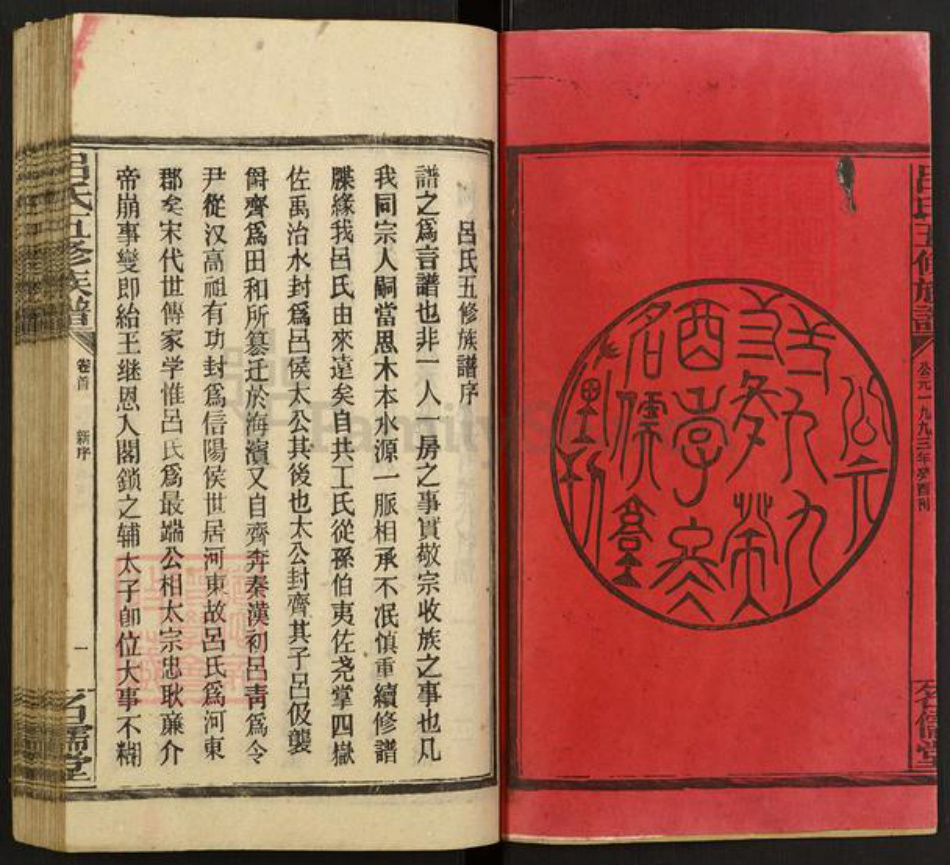 呂氏五修族譜
公元一九九三年癸酉刊
名儒堂
公元
一九九
三年
癸
酉
名儒堂
呂氏五修族譜序
譜之為言譜也非一人一房之事實敬宗收族之事也凡
我同宗人嗣當思木本水源一脈相承不泯慎重續修譜
牒緣我呂氏由來遠矣自共工氏從孫伯夷佐尧掌四嶽
佐禹治水封爲呂侯太公其後也太公封齊其子呂伋襲
爵齊爲田和所篡迁於海濱又自齊奔秦漢初呂青爲令
尹從汉高祖有功封爲信陽侯世居河東故呂氏爲河東
郡矣宋代世傳家学惟呂氏爲最端公相太宗忠耿亷介
帝崩事變即紿王继恩入閣鎖之辅太子卽位大事不糊
呂氏五修族譜
卷首
新序
一
名儒堂